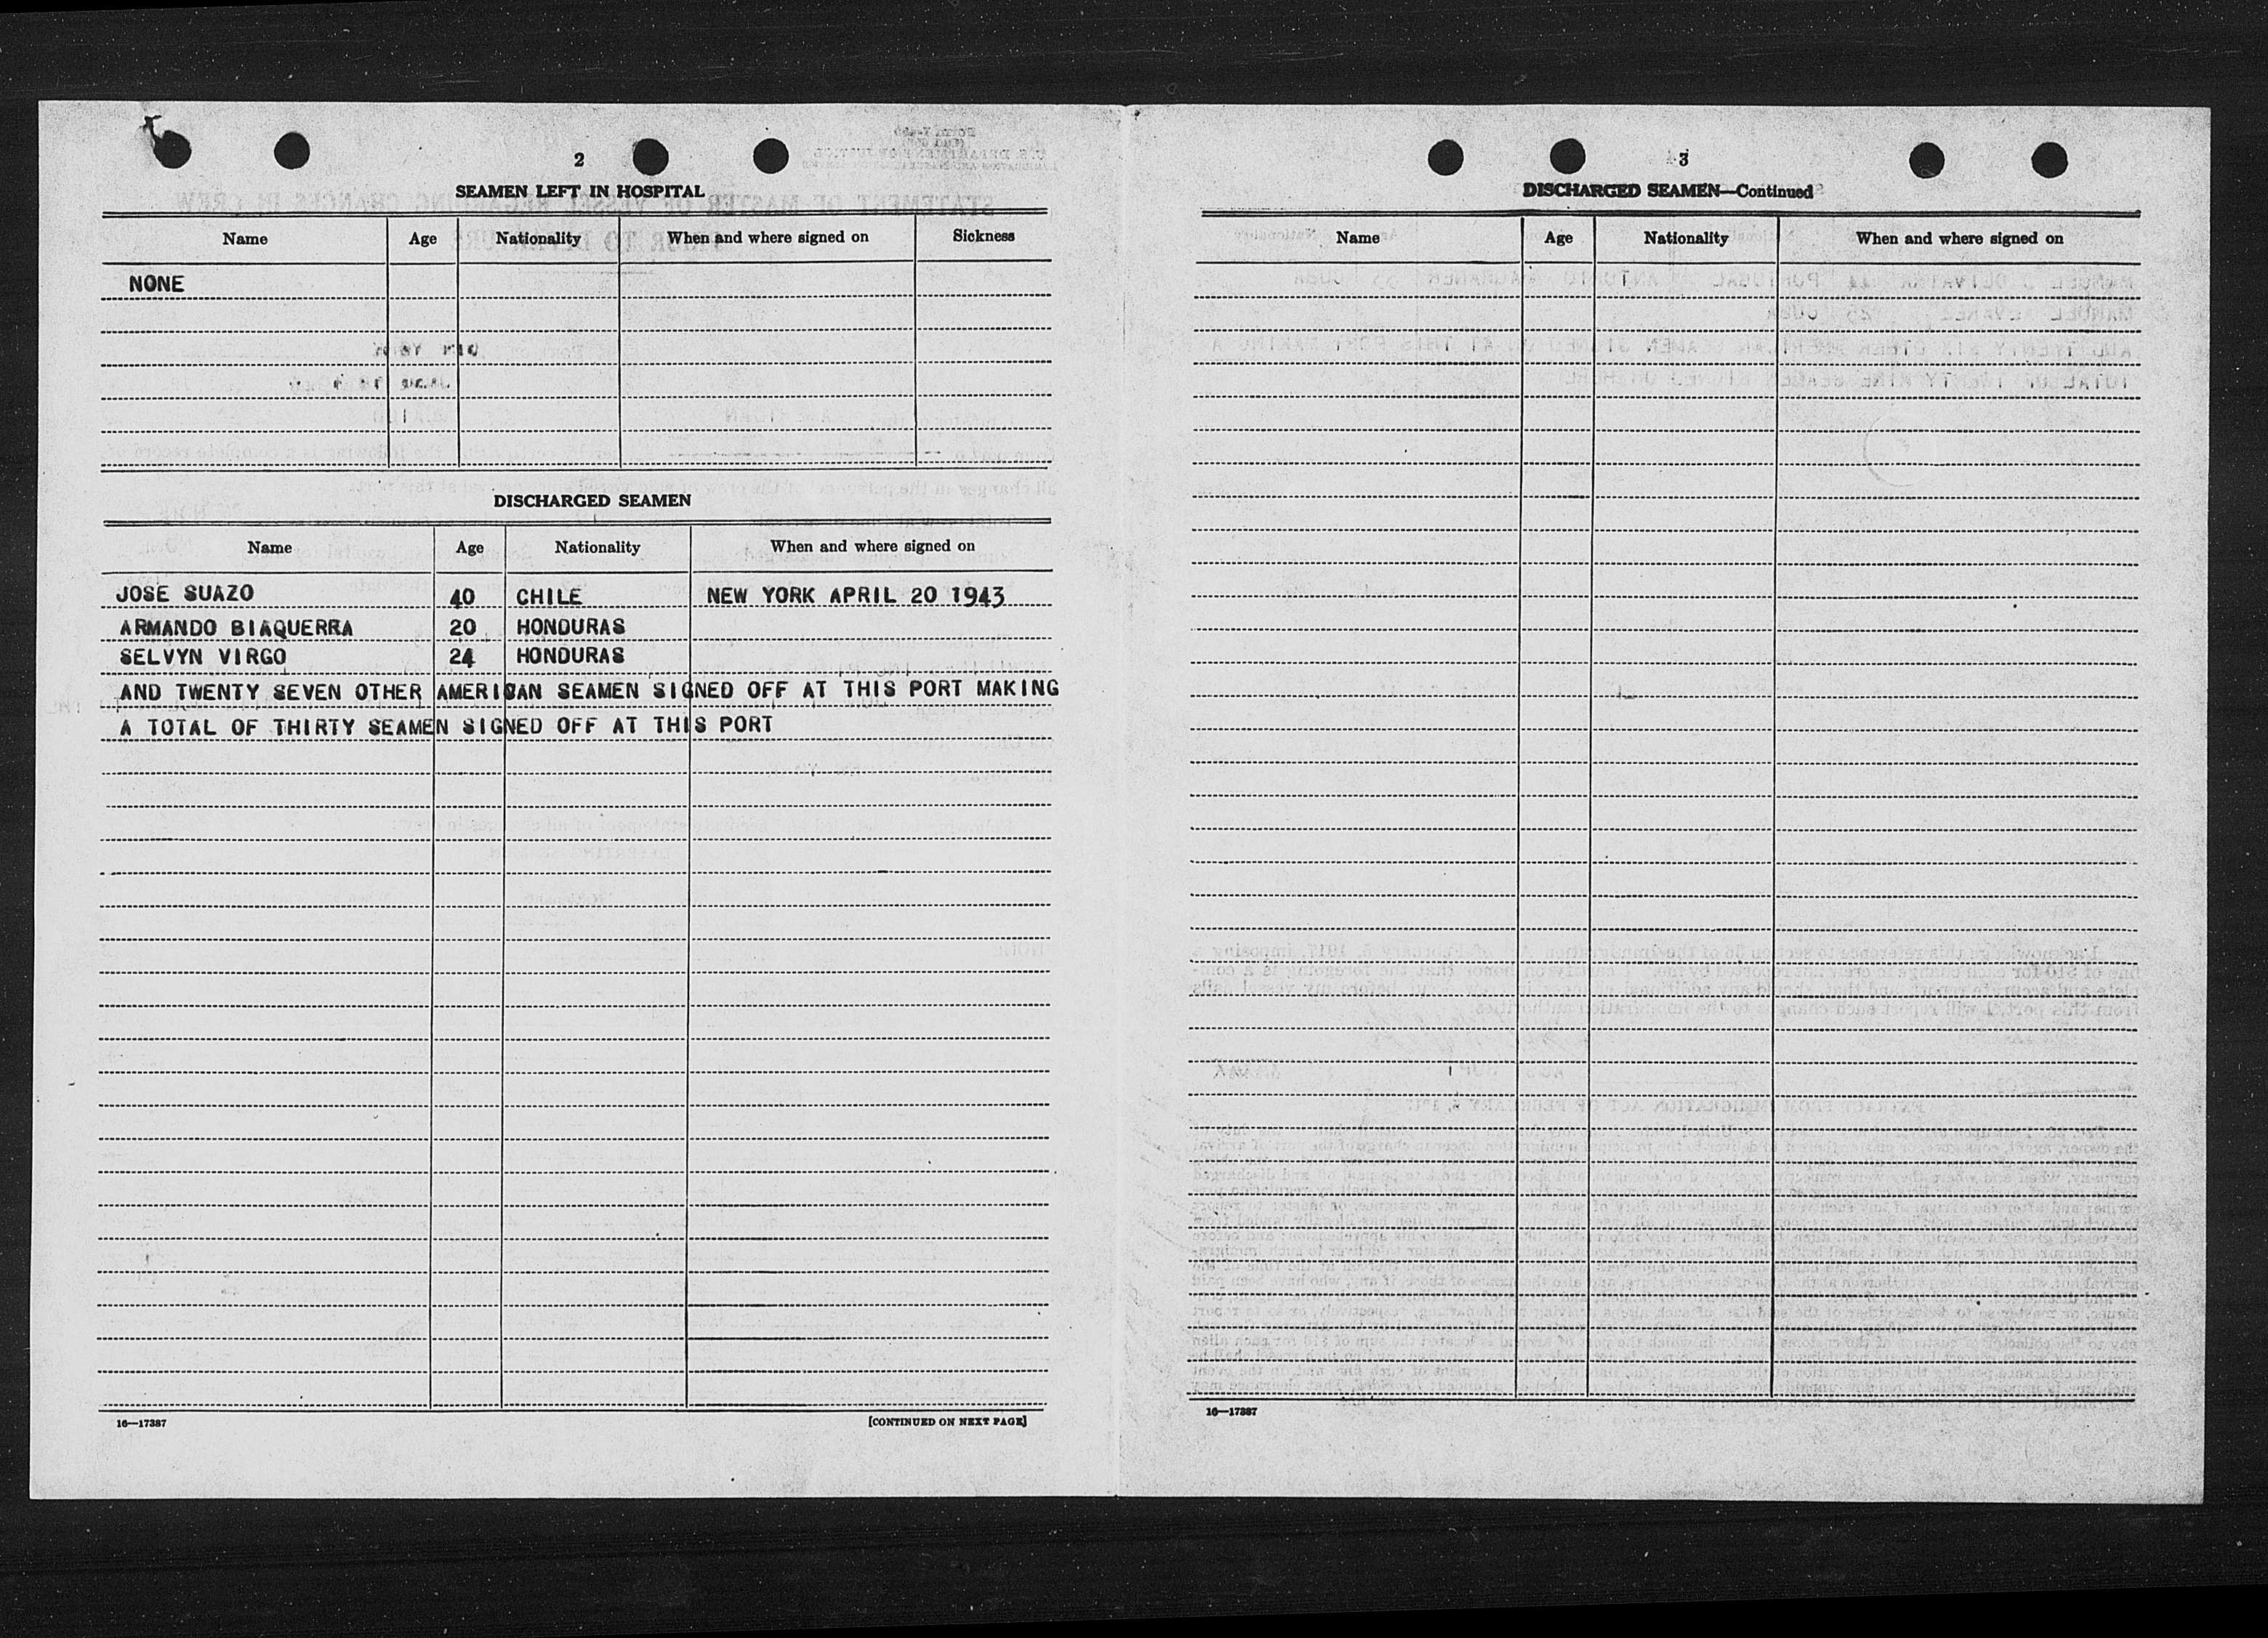 2
SEAMEN LEFT IN HOSPITAL
Name Age Nationality When and where signed on Sickness
NONE
DISCHARGED SEAMEN
Name Age Nationality When and where signed on
JOSE SUAZO 40 CHILE NEW YORK APRIL 20 1943
ARMANDO BIAQUERRA 20 HONDURAS
SELVYN VIRGO 24 HONDURAS
AND TWENTY SEVEN OTHER AMERICAN SEAMEN SIGNED OFF AT THIS PORT MAKING
A TOTAL OF THIRTY SEAMEN SIGNED OFF AT THIS PORT
16—17387 [CONTINUED ON NEXT PAGE]
3
DISCHARGED SEAMEN—Continued
Name Age Nationality When and where signed on
16—17387